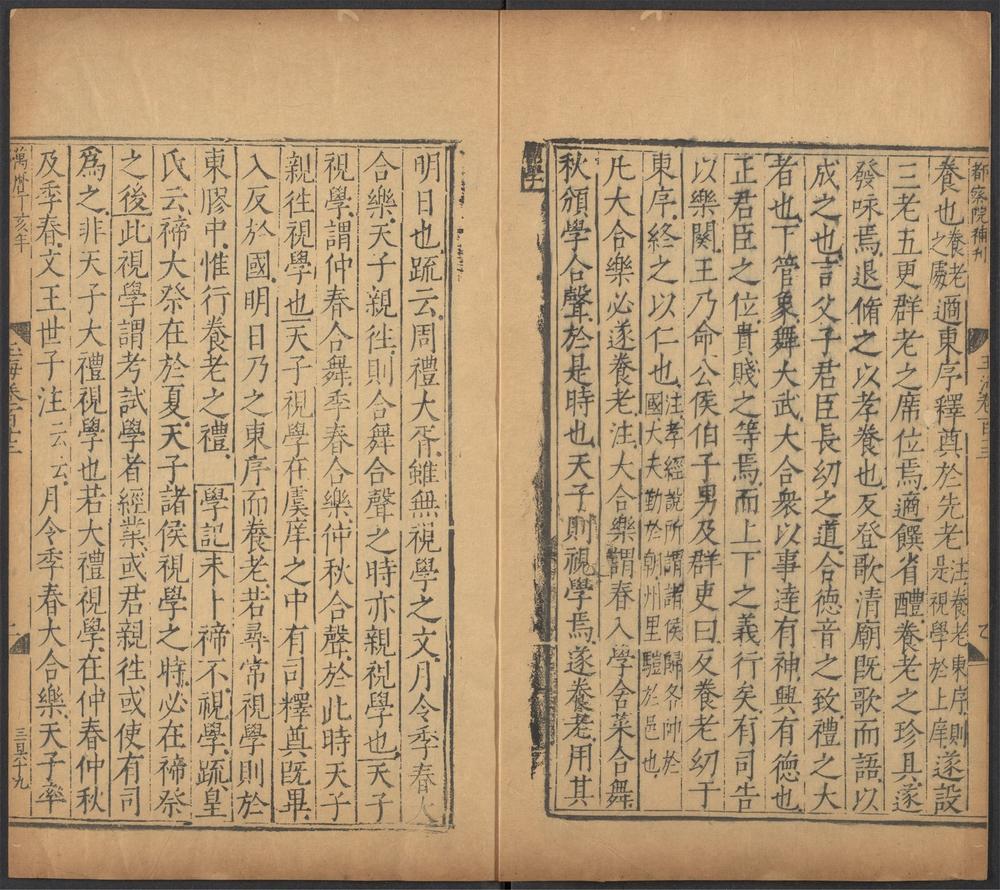 都察院補刊
養也養老之處適東序釋奠於先老注養老東序則是視學於上庠遂設
三老五更群老之席位焉適饌省醴養老之珍具遂
發咏焉退脩之以孝養也反登歌清廟旣歌而語以
成之也言父子君臣長幼之道合德音之致禮之大
者也下管象舞大武大合衆以事達有神興有德也
正君臣之位貴賤之等焉而上下之義行矣有司告
以樂闋王乃命公侯伯子男及群吏曰反養老幼于
東序終之以仁也注孝經說所謂諸侯歸各帥於國大夫勤於朝州里驩於邑也
凡大合樂必遂養老注大合樂謂春入學舍菜合舞
秋頒學合聲於是時也天子則視學焉遂養老用其
明日也疏云周禮大胥雖無視學之文月令季春大
合樂天子親徃則合舞合聲之時亦親視學也天子
視學謂仲春合舞季春合樂仲秋合聲於此時天子
親徃視學也天子視學在虞庠之中有司釋奠旣畢
入反於國明日乃之東序而養老若尋常視學則於
東膠中惟行養老之禮學記未卜禘不視學疏皇
氏云禘大祭在於夏天子諸侯視學之時必在禘祭
之後此視學謂考試學者經業或君親徃或使有司
爲之非天子大禮視學也若大禮視學在仲春仲秋
及季春文王世子注云云月令季春大合樂天子率
萬曆丁亥年